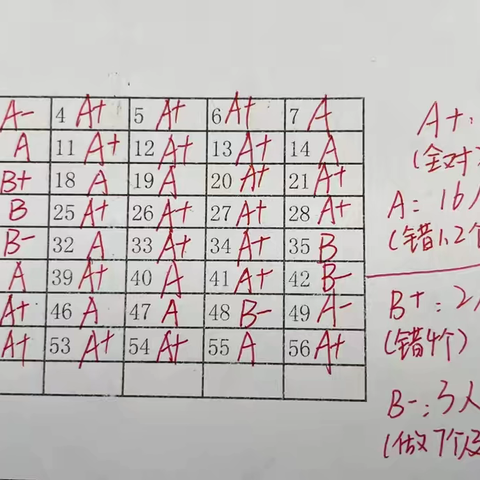 A- 4 A+ 5 A+ 6 A+ 7 A
A 11 A+ 12 A+ 13 A+ 14 A
B+ 18 A 19 A 20 A+ 21 A+
B 25 A+ 26 A+ 27 A+ 28 A+
B- 32 A 33 A+ 34 A+ 35 B
A 39 A+ 40 A 41 A+ 42 B-
A+ 46 A 47 A 48 B- 49 A-
A+ 53 A+ 54 A+ 55 A 56 A+
A+:
(全对
A: 16人
(错1、2个
B+: 2人
(错4个)
B-: 3人
(做7个及